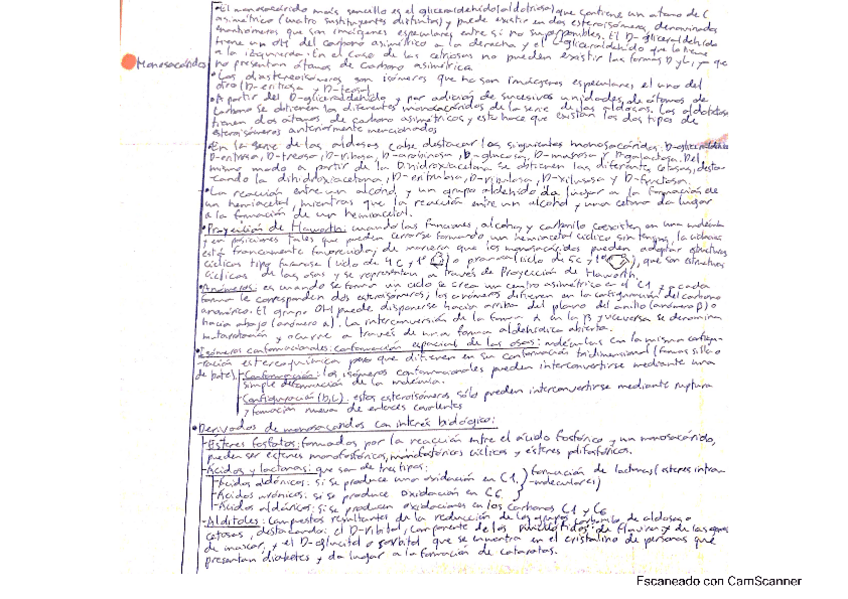 •El monosacárido más sencillo es el gliceraldehído(aldotriosa) que contiene un átomo de C
asimétrico (cuatro sustituyentes distintos) y puede existir en dos estereoisómeros denominados
enantiómeros que son imágenes especulares entre sí no superponibles. El D-gliceraldehído
tiene un OH del carbono asimétrico a la derecha y el L-gliceraldehído que lo tiene
a la izquierda. En el caso de las cetriosas no pueden existir las formas D y L, ya que
no presentan átomos de carbono asimétrico
Monosacárido
•Los diastereoisómeros son isómeros que no son imágenes especulares el uno del
otro (D-eritrosa y D-treosa)
•A partir del D-gliceraldehído y por adición de sucesivas unidades de átomos de
carbono se obtienen los diferentes monosacáridos de la serie de las aldosas. Las aldotetrosas
tienen dos átomos de carbono asimétricos y esto hace que existan los dos tipos de
estereoisómeros anteriormente mencionados
•En la serie de las aldosas cabe destacar los siguientes monosacáridos: D-gliceraldehído
D-eritrosa, D-treosa, D-ribosa, D-arabinosa, D-glucosa, D-manosa y D-galactosa. Del
mismo modo a partir de la Dihidroxiacetona se obtienen las diferentes cetosas, desta-
cando la dihidroxiacetona, D-eritrulosa, D-ribulosa, D-xilulosa y D-fructosa.
•La reacción entre un alcohol y un grupo aldehído da lugar a la formación de
un hemiacetal, mientras que la reacción entre un alcohol y una cetona da lugar
a la formación de un hemiacetal.
•Proyección de Haworth: cuando las funciones alcohol y carbonilo coexisten en una molécula
y en posiciones tales que pueden cerrarse formando un hemiacetal cíclico sin tensión, la ciclación
está francamente favorecida, de manera que los monosacáridos pueden adoptar estructuras
cíclicas tipo furanosa (ciclo de 4C y 1O) o piranosa (ciclo de 5C y 1O), que son estructuras
cíclicas de las osas y se representan a través de Proyección de Haworth.
•Anómeros: es cuando se forma un ciclo se crea un centro asimétrico en el C1 y a cada
forma le corresponden dos estereoisómeros, los anómeros difieren en la configuración del carbono
anomérico. El grupo OH puede disponerse hacia arriba del plano del anillo (anómero β) o
hacia abajo (anómero α). La interconversión de la forma α en la β y viceversa se denomina
mutarrotación y ocurre a través de una forma aldehídica abierta.
•Isómeros conformacionales: conformación espacial de las osas: moléculas con la misma configu-
-ración estereoquímica pero que difieren en su conformación tridimensional (formas silla o
de bote)
-Conformación: los isómeros conformacionales pueden interconvertirse mediante una
simple deformación de la molécula.
-Configuración (D,L): estos estereoisómeros, sólo pueden interconvertirse mediante ruptura
y formación nueva de enlaces covalentes
•Derivados de monosacáridos con interés biológico:
-Ésteres fosfatos: formados por la reacción entre el ácido fosfórico y un monosacárido,
pueden ser ésteres monofosfóricos, monofosfóricos cíclicos y ésteres polifosfóricos.
-Ácidos y lactonas: que son de tres tipos:
-Ácidos aldónicos: si se produce una oxidación en C1. } formación de lactonas (ésteres intra-
-moleculares)
-Ácidos urónicos: si se produce oxidación en C6
-Ácidos aldáricos: si se producen oxidaciones en los carbonos C1 y C6
-Alditoles: compuestos resultantes de la reducción de los grupos carbonilo de aldosas o
cetosas, destacando: el D-ribitol, componente de los nucleótidos de flavina y de las gomas
de mascar, y el D-glucitol o sorbitol que se encuentra en el cristalino de personas que
presentan diabetes y da lugar a la formación de cataratas.
Escaneado con CamScanner